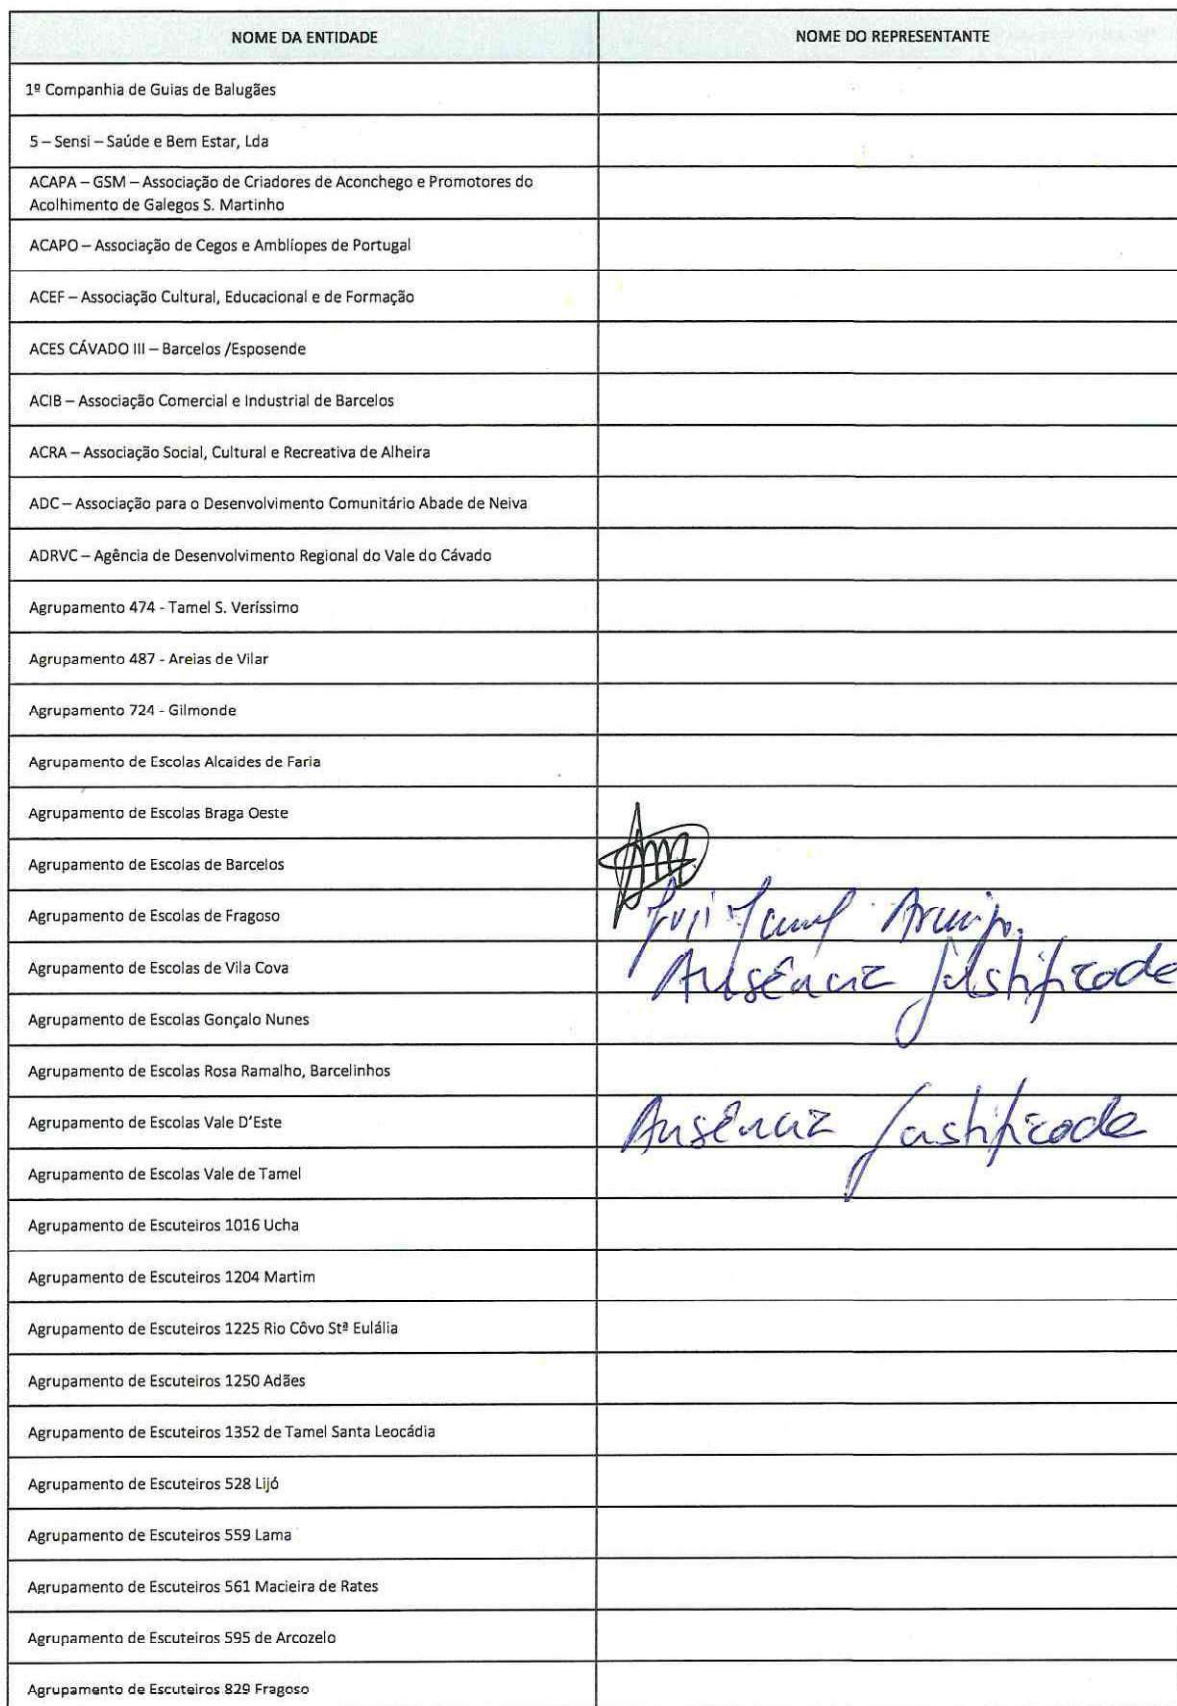 NOME DA ENTIDADE NOME DO REPRESENTANTE
1º Companhia de Guias de Balugães
5 – Sensi – Saúde e Bem Estar, Lda
ACAPA – GSM – Associação de Criadores de Aconchego e Promotores do
Acolhimento de Galegos S. Martinho
ACAPO – Associação de Cegos e Amblíopes de Portugal
ACEF – Associação Cultural, Educacional e de Formação
ACES CÁVADO III – Barcelos /Esposende
ACIB – Associação Comercial e Industrial de Barcelos
ACRA – Associação Social, Cultural e Recreativa de Alheira
ADC – Associação para o Desenvolvimento Comunitário Abade de Neiva
ADRVC – Agência de Desenvolvimento Regional do Vale do Cávado
Agrupamento 474 - Tamel S. Veríssimo
Agrupamento 487 - Areias de Vilar
Agrupamento 724 - Gilmonde
Agrupamento de Escolas Alcaides de Faria
Agrupamento de Escolas Braga Oeste
Agrupamento de Escolas de Barcelos
Agrupamento de Escolas de Fragoso
Agrupamento de Escolas de Vila Cova Ausência justificada
Agrupamento de Escolas Gonçalo Nunes
Agrupamento de Escolas Rosa Ramalho, Barcelinhos
Agrupamento de Escolas Vale D'Este Ausência justificada
Agrupamento de Escolas Vale de Tamel
Agrupamento de Escuteiros 1016 Ucha
Agrupamento de Escuteiros 1204 Martim
Agrupamento de Escuteiros 1225 Rio Côvo Stª Eulália
Agrupamento de Escuteiros 1250 Adães
Agrupamento de Escuteiros 1352 de Tamel Santa Leocádia
Agrupamento de Escuteiros 528 Lijó
Agrupamento de Escuteiros 559 Lama
Agrupamento de Escuteiros 561 Macieira de Rates
Agrupamento de Escuteiros 595 de Arcozelo
Agrupamento de Escuteiros 829 Fragoso